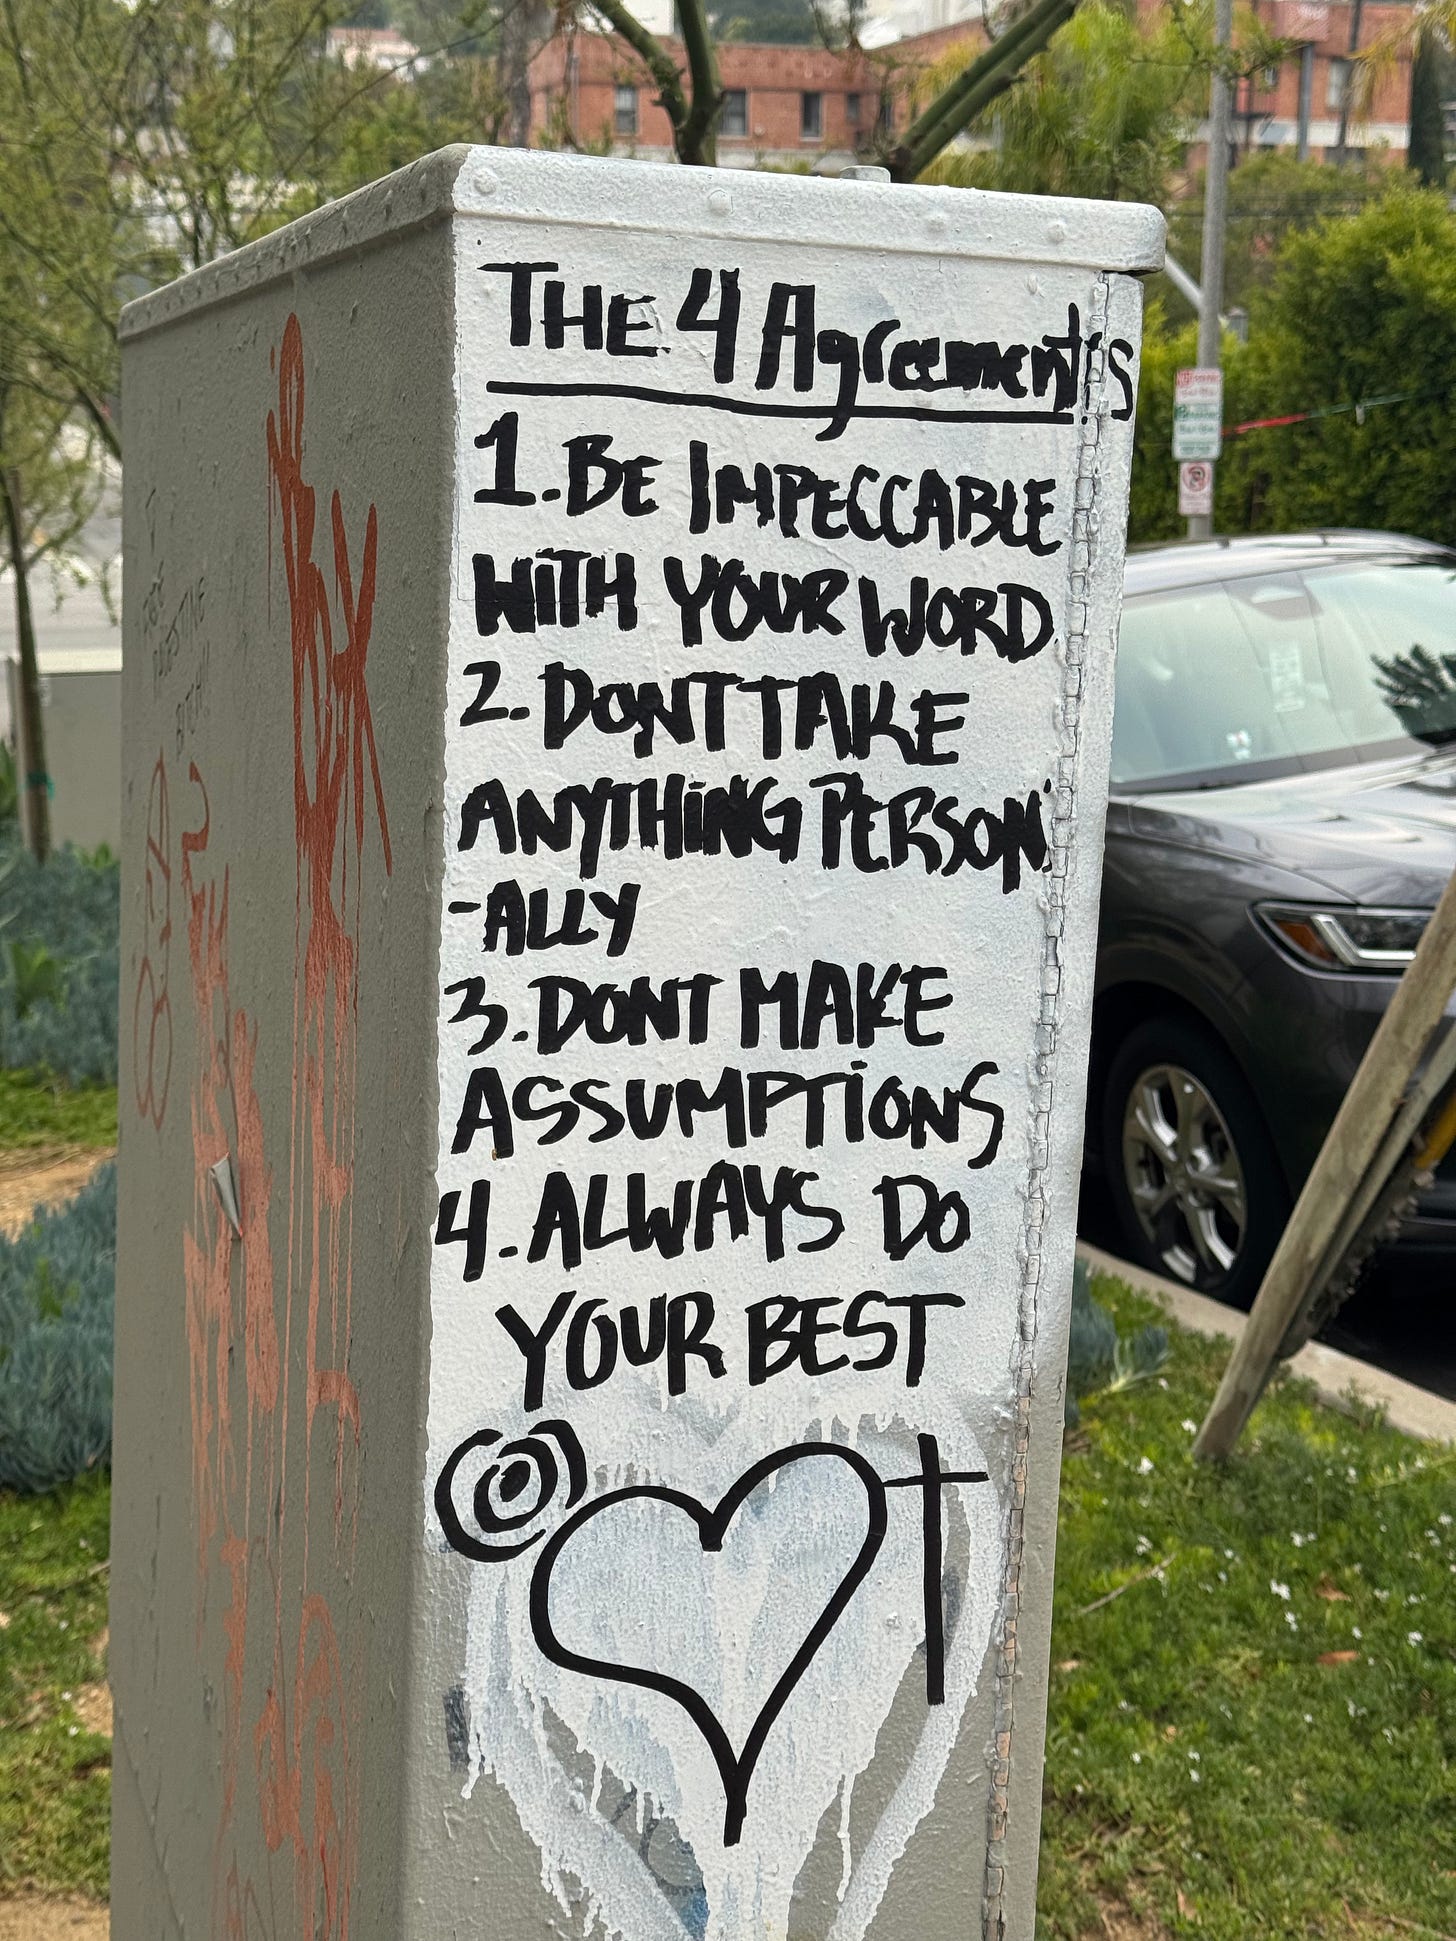 THE 4 Agreements
1. BE IMPECCABLE
WiTH YOUR WORD
2. DONT TAKE
ANYTHiNG PERSON
-ALLY
3. DONT MAKE
ASSUMPTiONS
4. ALWAYS DO
YOUR BEST